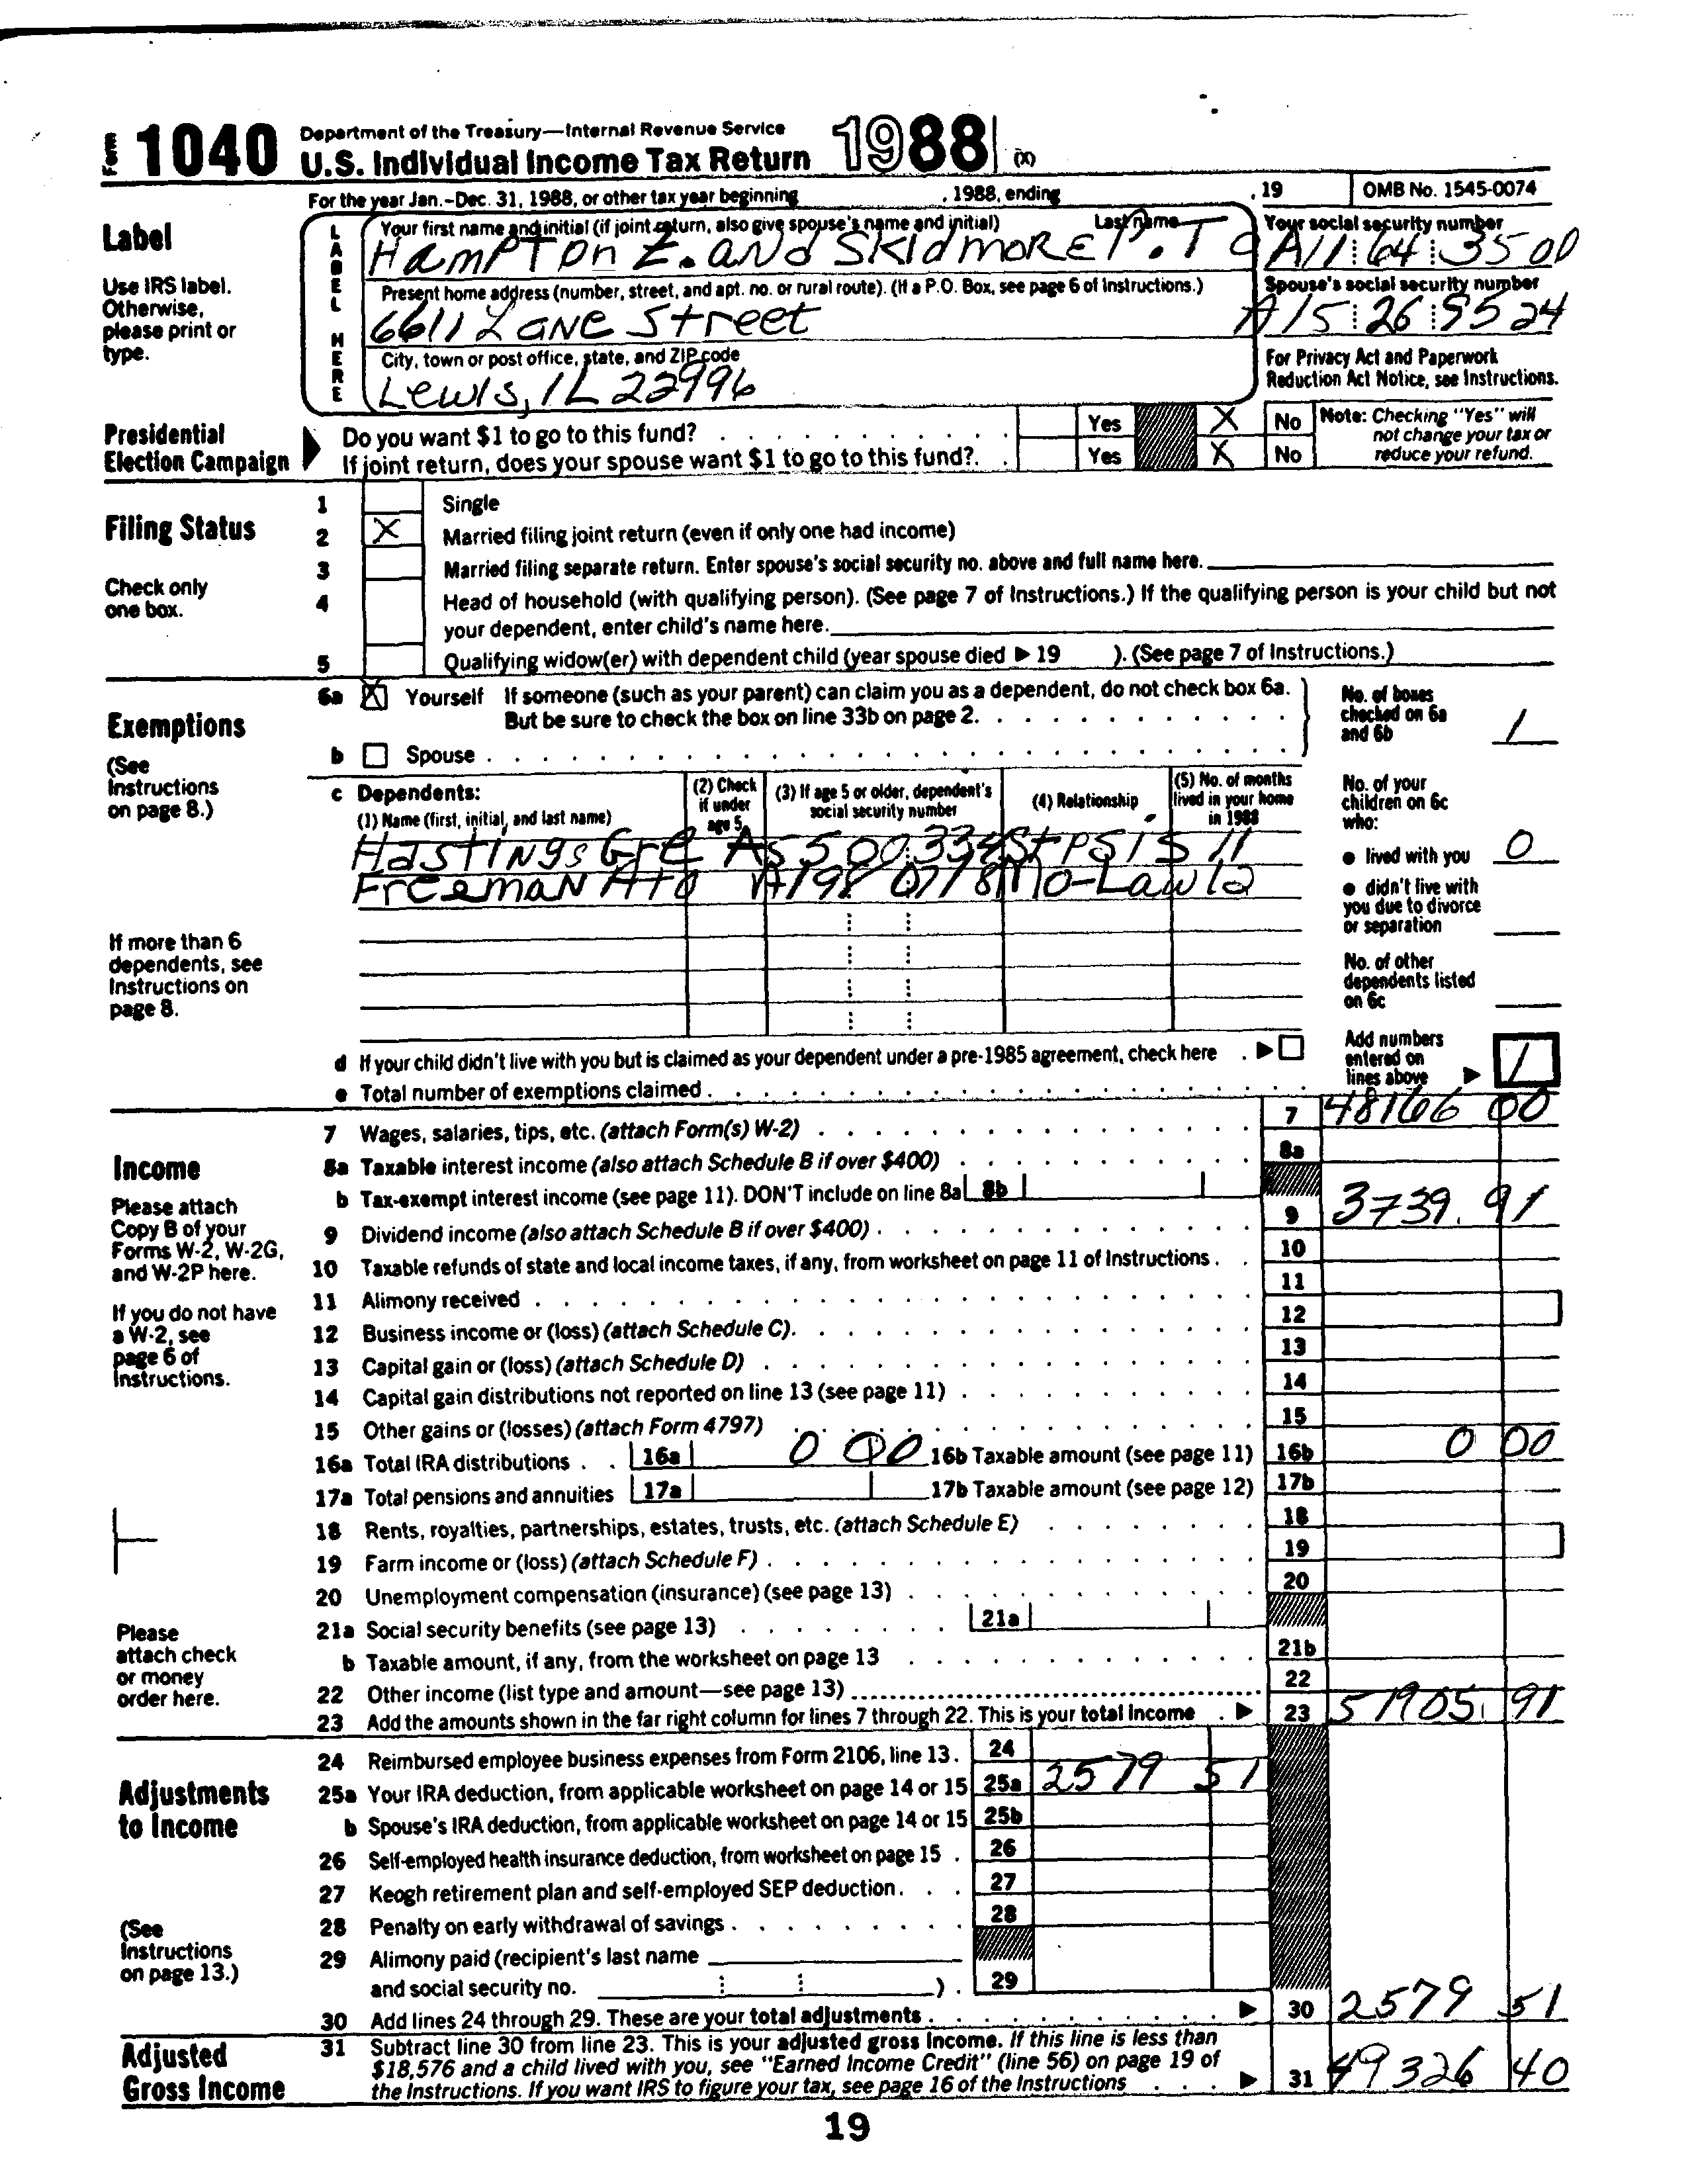 Form 1040 Department of the Treasury—Internal Revenue Service
U.S. Individual Income Tax Return 1988 (X)
For the year Jan.-Dec. 31, 1988, or other tax year beginning , 1988, ending , 19 OMB No. 1545-0074
Label
Use IRS label.
Otherwise,
please print or
type.
LABEL HERE
Your first name and initial (if joint return, also give spouse's name and initial) Last name
Hampton Z. and Skidmore P. T
Your social security number
A11 64 3500
Present home address (number, street, and apt. no. or rural route). (If a P.O. Box, see page 6 of Instructions.)
6611 Lane Street
Spouse's social security number
A15 26 9524
City, town or post office, state, and ZIP code
Lewis, IL 22996
For Privacy Act and Paperwork
Reduction Act Notice, see Instructions.
Presidential
Election Campaign
Do you want $1 to go to this fund? Yes X No
If joint return, does your spouse want $1 to go to this fund? Yes X No
Note: Checking "Yes" will
not change your tax or
reduce your refund.
Filing Status
Check only
one box.
1 Single
2 X Married filing joint return (even if only one had income)
3 Married filing separate return. Enter spouse's social security no. above and full name here.
4 Head of household (with qualifying person). (See page 7 of Instructions.) If the qualifying person is your child but not
your dependent, enter child's name here.
5 Qualifying widow(er) with dependent child (year spouse died ▶ 19 ). (See page 7 of Instructions.)
Exemptions
(See
Instructions
on page 8.)
6a X Yourself If someone (such as your parent) can claim you as a dependent, do not check box 6a.
But be sure to check the box on line 33b on page 2.
b Spouse
No. of boxes
checked on 6a
and 6b 1
c Dependents:
(1) Name (first, initial, and last name)
(2) Check
if under
age 5
(3) If age 5 or older, dependent's
social security number
(4) Relationship
(5) No. of months
lived in your home
in 1988
Hastings Gre A5 500 334 StpSis 11
Freeman Ato A198 0718 Mo-Law 12
If more than 6
dependents, see
Instructions on
page 8.
No. of your
children on 6c
who:
● lived with you 0
● didn't live with
you due to divorce
or separation
No. of other
dependents listed
on 6c
d If your child didn't live with you but is claimed as your dependent under a pre-1985 agreement, check here ▶
e Total number of exemptions claimed
Add numbers
entered on
lines above ▶ 1
Income
Please attach
Copy B of your
Forms W-2, W-2G,
and W-2P here.
If you do not have
a W-2, see
page 6 of
Instructions.
Please
attach check
or money
order here.
7 Wages, salaries, tips, etc. (attach Form(s) W-2) 7 48166 00
8a Taxable interest income (also attach Schedule B if over $400) 8a
b Tax-exempt interest income (see page 11). DON'T include on line 8a 8b
9 Dividend income (also attach Schedule B if over $400) 9 3739. 91
10 Taxable refunds of state and local income taxes, if any, from worksheet on page 11 of Instructions 10
11 Alimony received 11
12 Business income or (loss) (attach Schedule C) 12
13 Capital gain or (loss) (attach Schedule D) 13
14 Capital gain distributions not reported on line 13 (see page 11) 14
15 Other gains or (losses) (attach Form 4797) 15
16a Total IRA distributions 16a 0 00 16b Taxable amount (see page 11) 16b 0 00
17a Total pensions and annuities 17a 17b Taxable amount (see page 12) 17b
18 Rents, royalties, partnerships, estates, trusts, etc. (attach Schedule E) 18
19 Farm income or (loss) (attach Schedule F) 19
20 Unemployment compensation (insurance) (see page 13) 20
21a Social security benefits (see page 13) 21a
b Taxable amount, if any, from the worksheet on page 13 21b
22 Other income (list type and amount—see page 13) 22
23 Add the amounts shown in the far right column for lines 7 through 22. This is your total income ▶ 23 51905 91
Adjustments
to Income
(See
Instructions
on page 13.)
24 Reimbursed employee business expenses from Form 2106, line 13. 24
25a Your IRA deduction, from applicable worksheet on page 14 or 15 25a 2579 51
b Spouse's IRA deduction, from applicable worksheet on page 14 or 15 25b
26 Self-employed health insurance deduction, from worksheet on page 15 26
27 Keogh retirement plan and self-employed SEP deduction 27
28 Penalty on early withdrawal of savings 28
29 Alimony paid (recipient's last name
and social security no. ) 29
30 Add lines 24 through 29. These are your total adjustments ▶ 30 2579 51
Adjusted
Gross Income
31 Subtract line 30 from line 23. This is your adjusted gross income. If this line is less than
$18,576 and a child lived with you, see "Earned Income Credit" (line 56) on page 19 of
the Instructions. If you want IRS to figure your tax, see page 16 of the Instructions ▶ 31 49326 40
19